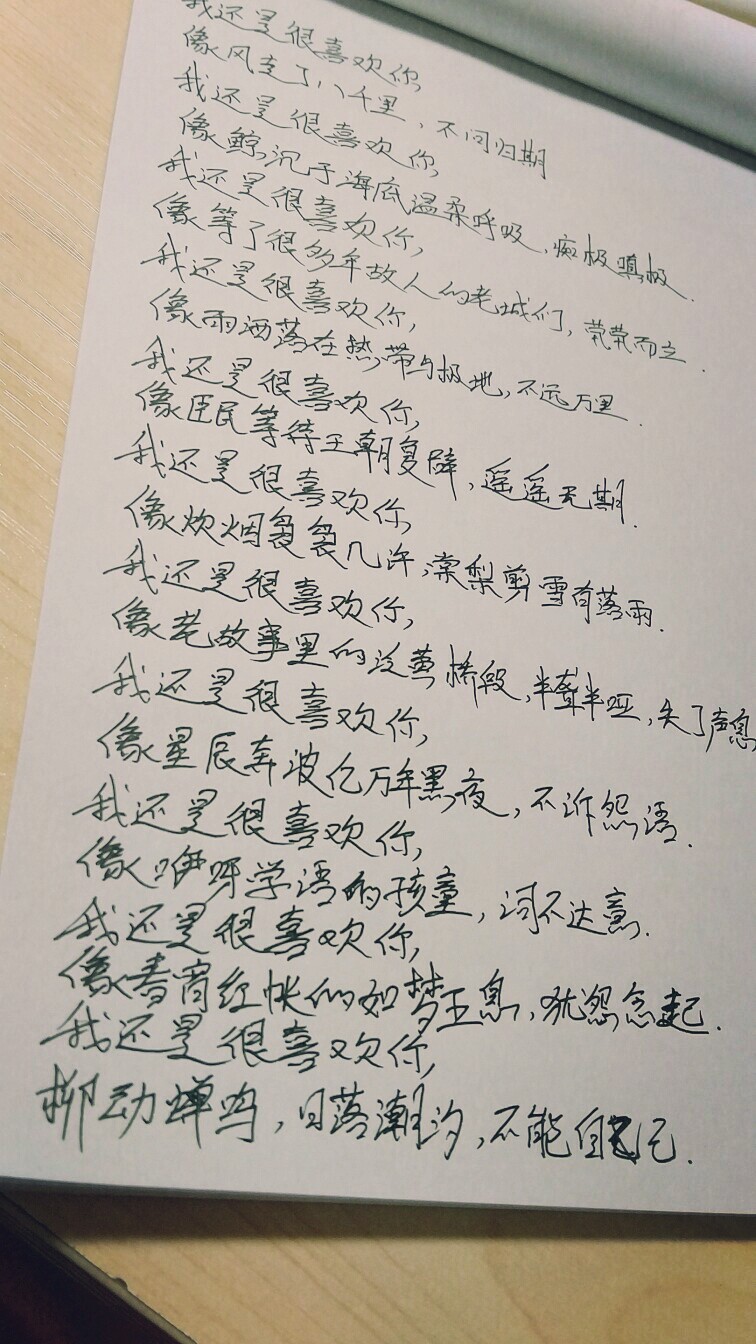 我还是很喜欢你
像风走了八千里，不问归期
我还是很喜欢你
像鲸沉于海底温柔呼吸，痴极嗔极.
我还是很喜欢你，
像等了很多年故人的老城们，茕茕而立.
我还是很喜欢你，
像雨洒落在热带与极地，不远万里.
我还是很喜欢你，
像臣民等待王朝复辟，遥遥无期.
我还是很喜欢你，
像炊烟袅袅几许，棠梨剪雪有落雨.
我还是很喜欢你，
像老故事里的泛黄桥段，半聋半哑，失了声息
我还是很喜欢你，
像星辰奔波亿万年黑夜，不诉怨语.
我还是很喜欢你，
像咿呀学语的孩童，词不达意.
我还是很喜欢你，
像春宵红帐的如梦王息，犹怨念起.
我还是很喜欢你，
柳动蝉鸣，日落潮汐，不能自已.